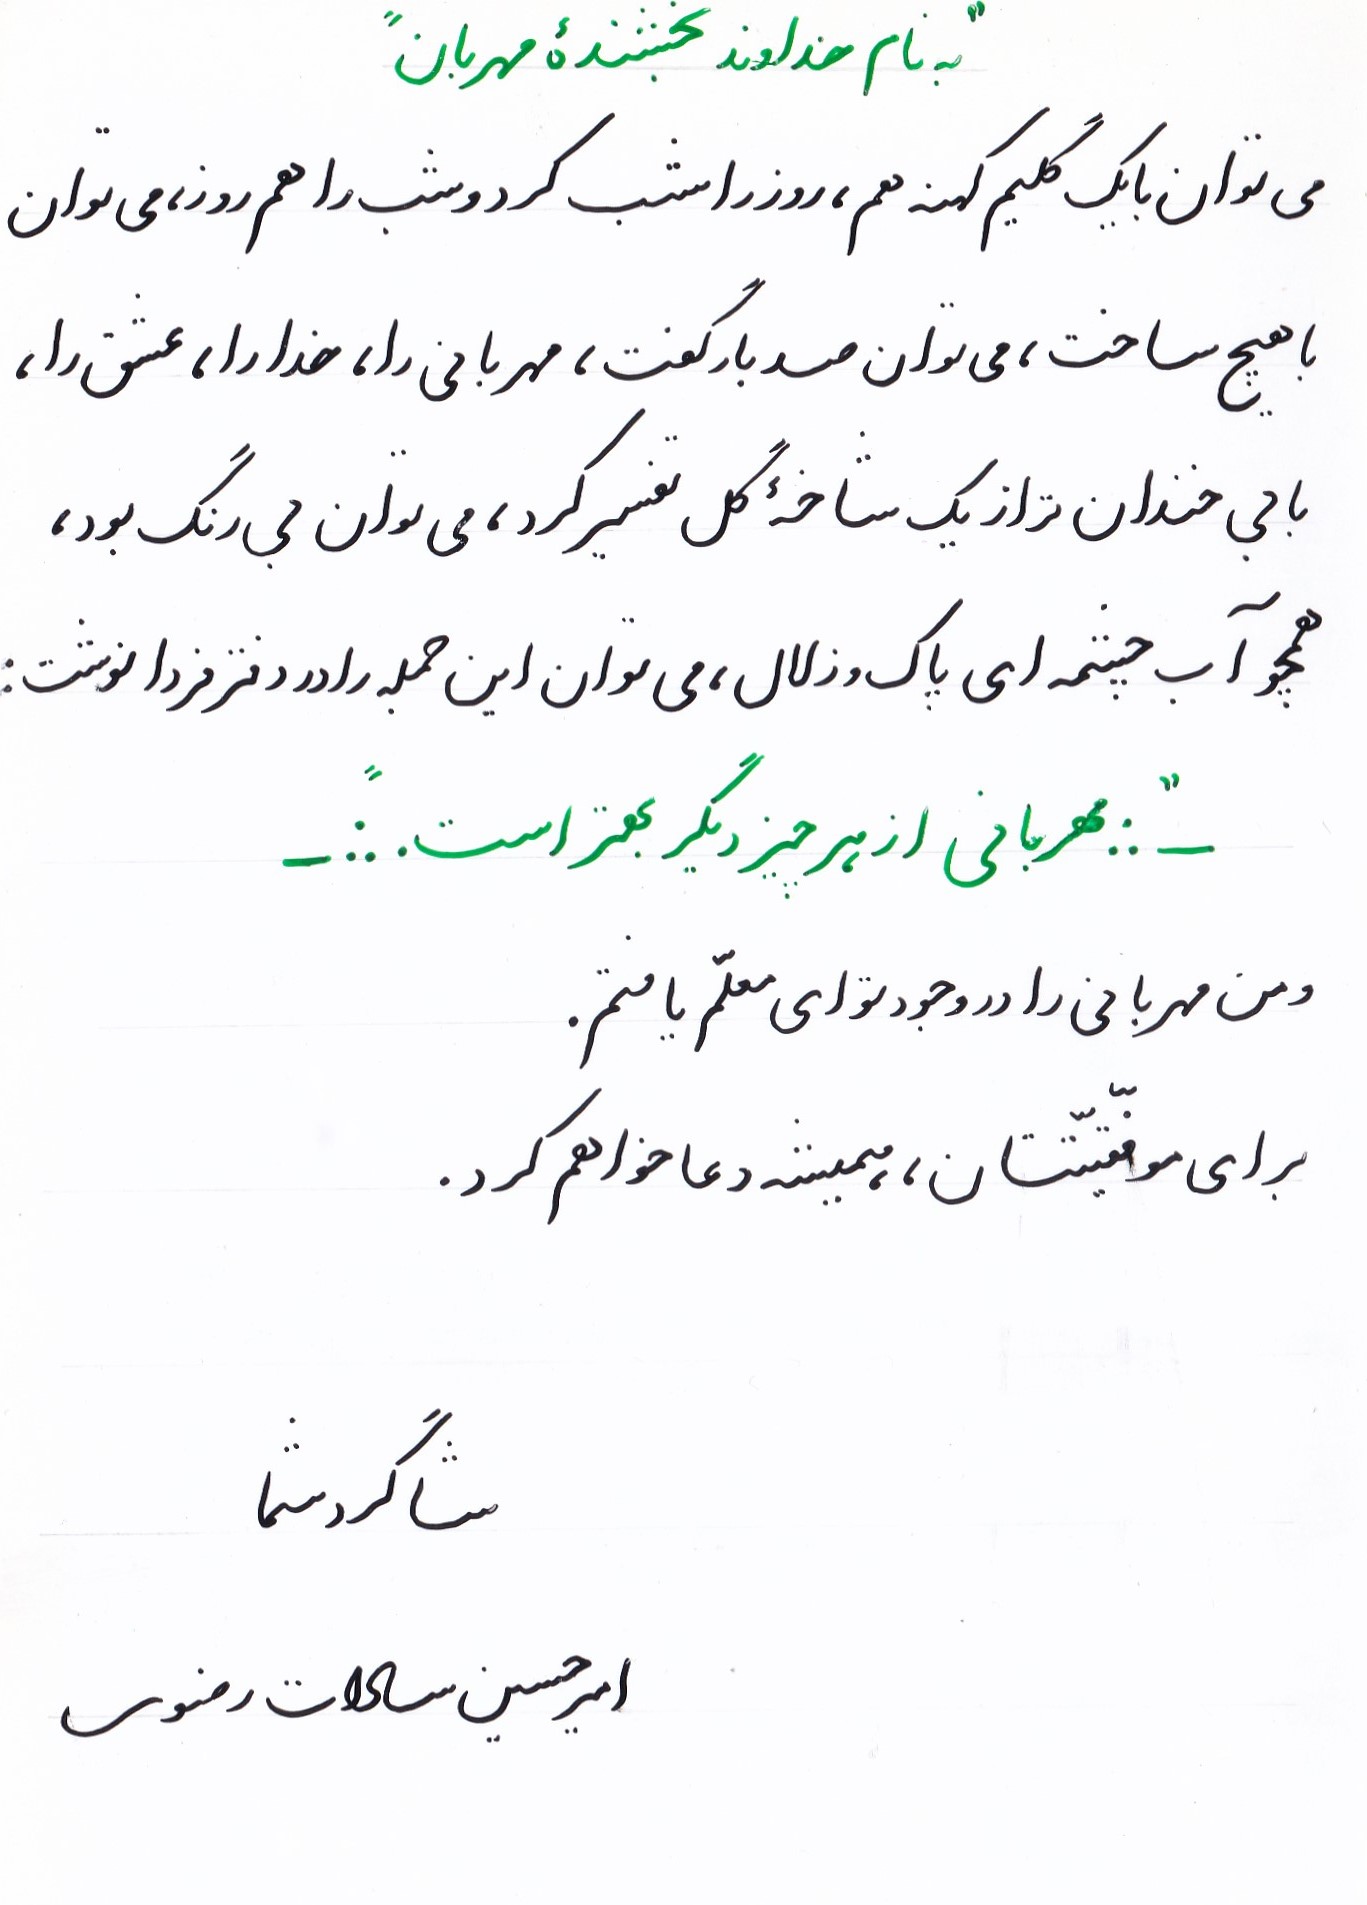 "به نام خداوند بخشندهٔ مهربان"
می توان با یک گلیم کهنه هم، روز را شب کرد و شب را هم روز، می توان
با هیچ ساخت، می توان صد بار گفت، مهربانی را، خدا را، عشق را،
با لبی خندان تر از یک شاخهٔ گل تفسیر کرد، می توان بی رنگ بود،
همچو آب چشمه ای پاک و زلال، می توان این جمله را در دفتر فردا نوشت:
_":: مهربانی از هر چیز دیگر بهتر است. ::"_
و من مهربانی را در وجود تو ای معلّم یافتم.
برای موفّقیّتتان، همیشه دعا خواهم کرد.
شاگرد شما
امیرحسین سادات رضوی